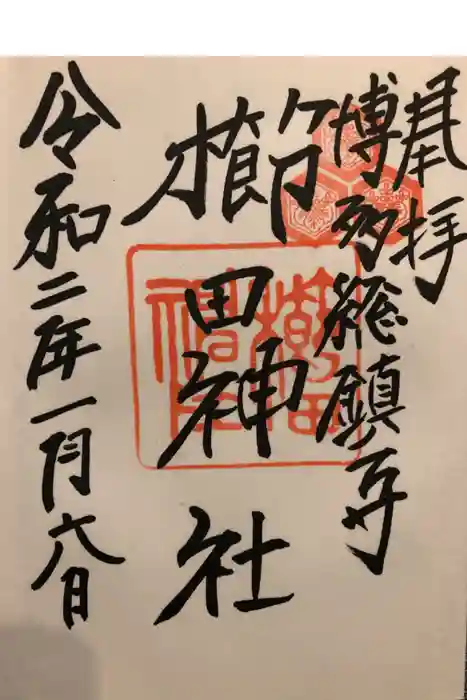 奉拝
博多総鎮守
櫛田神社
令和二年一月六日